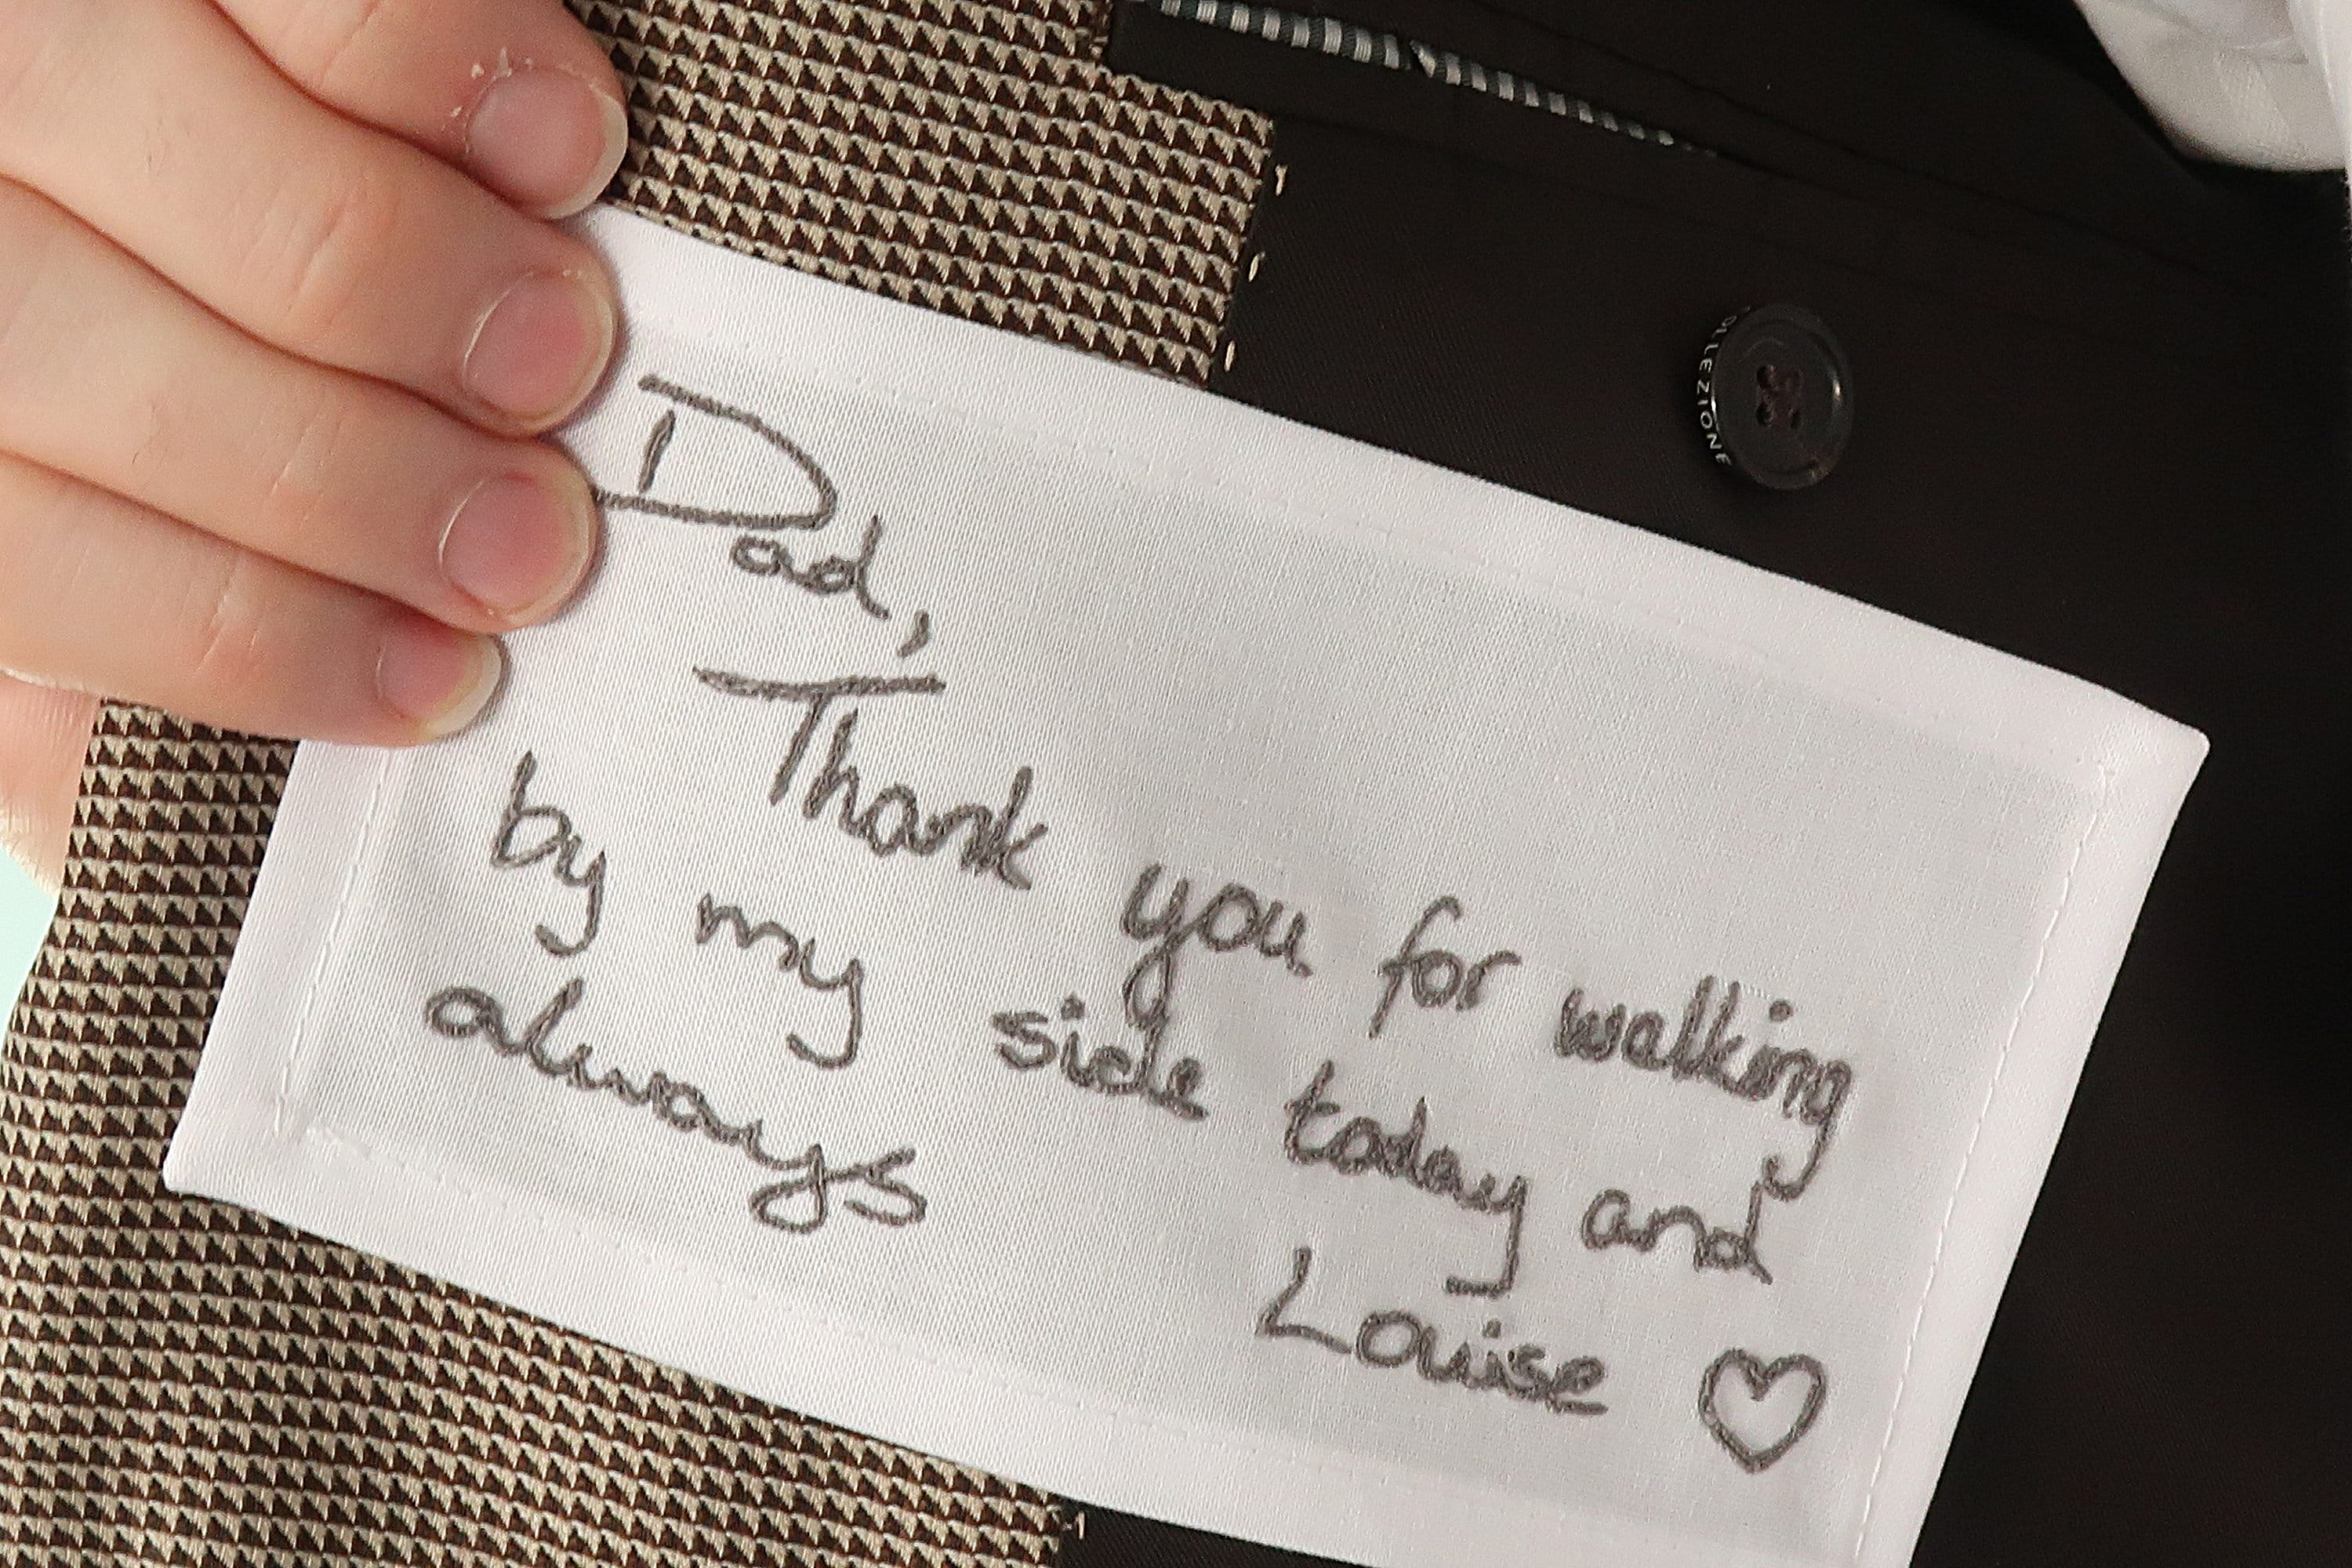 Dad,
Thank you for walking
by my side today and
always
Louise ♡
COLLEZIONE